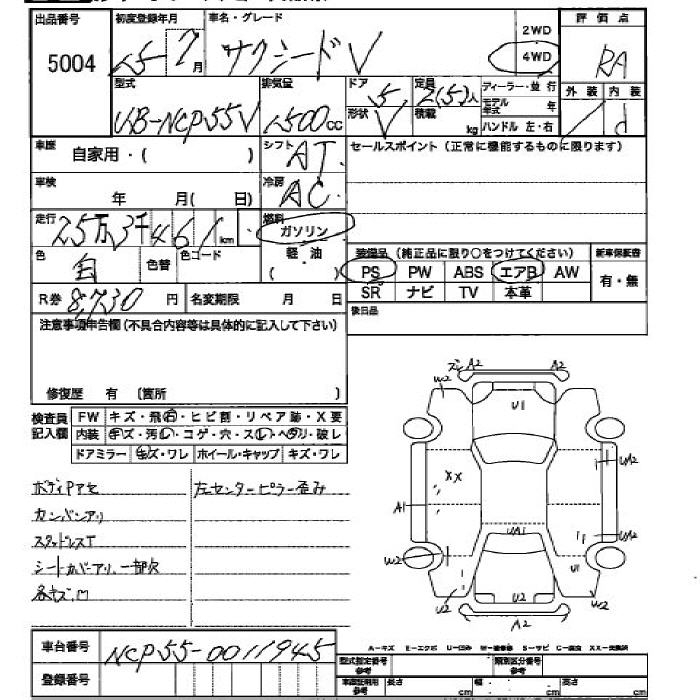 出品番号
5004
初度登録年月
15-7月
車名・グレード
サクシードV
2WD
4WD
評価点
RA
外装 内装
d
型式
UB-NCP55V
排気量
1500cc
ドア
5
形状
V
定員
2(5)人
積載
kg
ディーラー・並行
モデル年式 年
ハンドル 左・右
車歴 自家用・( )
シフト
AT
セールスポイント(正常に機能するものに限ります)
車検 年 月( 日)
冷房
AC
走行 25万3千461km
燃料
ガソリン
軽油
( )
色
白
色替
色コード
R券 8,730円
名変期限 月 日
装備品(純正品に限り○をつけてください)
PS PW ABS エアB AW
SR ナビ TV 本革
新車保証書
有・無
後日品
注意事項申告欄(不具合内容等は具体的に記入して下さい)
修復歴 有 (箇所 )
検査員記入欄
FW キズ・飛石・ヒビ割・リペア跡・X要
内装 キズ・汚レ・コゲ・穴・スレ・ヘタリ・破レ
ドアミラー キズ・ワレ ホイール・キャップ キズ・ワレ
ボディPアセ
カンバンアリ
スタッドレスT
シートカバーアリ、一部欠
各キズ、凹
左センターピラー歪み
ズレ A2 A2
W2
U1
XX
UA2
A1
UA2
UA1
W2
U1
U2
U2
W2
A2
A-キズ E-エクボ U-凹み W-補修跡 S-サビ C-腐食 XX-交換済
車台番号
NCP55-0011945
登録番号
型式指定番号
参考
類別区分番号
参考
車庫証明用
参考
長さ cm 幅 cm 高さ cm